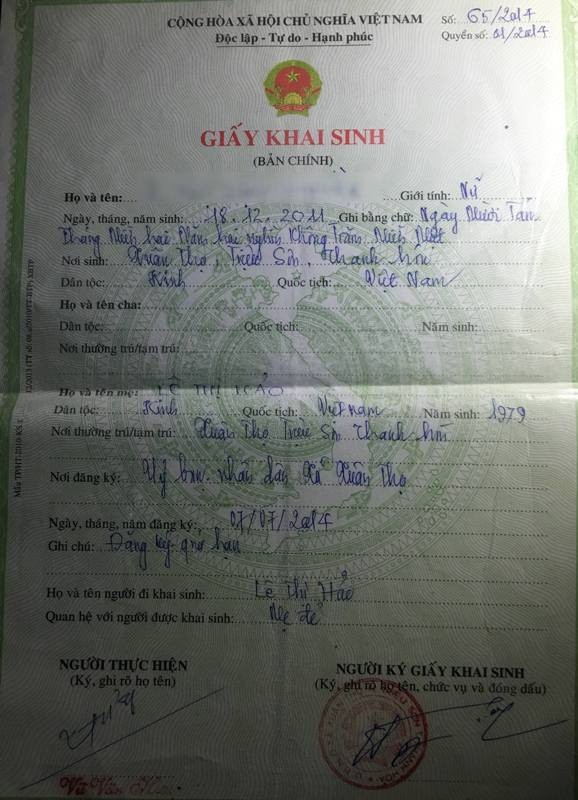 CỘNG HÒA XÃ HỘI CHỦ NGHĨA VIỆT NAM
Độc lập - Tự do - Hạnh phúc
Số: 65/2014
Quyển số: 01/2014
GIẤY KHAI SINH
(BẢN CHÍNH)
Họ và tên: Giới tính: Nữ
Ngày, tháng, năm sinh: 18.12.2011 Ghi bằng chữ: Ngày Mười Tám
Tháng Mười hai Năm hai nghìn Không Trăm Mười Một
Nơi sinh: Xuân Thọ, Triệu Sơn, Thanh hóa
Dân tộc: Kinh Quốc tịch: Việt Nam
Họ và tên cha:
Dân tộc: Quốc tịch: Năm sinh:
Nơi thường trú/tạm trú:
Họ và tên mẹ: LÊ THỊ HẢO
Dân tộc: Kinh Quốc tịch: Việt nam Năm sinh: 1979
Nơi thường trú/tạm trú: Xuân Thọ Triệu Sơn Thanh hóa
Nơi đăng ký: Uỷ ban nhân dân Xã Xuân Thọ
Ngày, tháng, năm đăng ký: 07/07/2014
Ghi chú: Đăng ký quá hạn
Họ và tên người đi khai sinh: Lê Thị Hảo
Quan hệ với người được khai sinh: Mẹ đẻ
NGƯỜI THỰC HIỆN
(Ký, ghi rõ họ tên)
NGƯỜI KÝ GIẤY KHAI SINH
(Ký, ghi rõ họ tên, chức vụ và đóng dấu)
Vũ Văn
Mẫu TP/HT-2010-KS.1